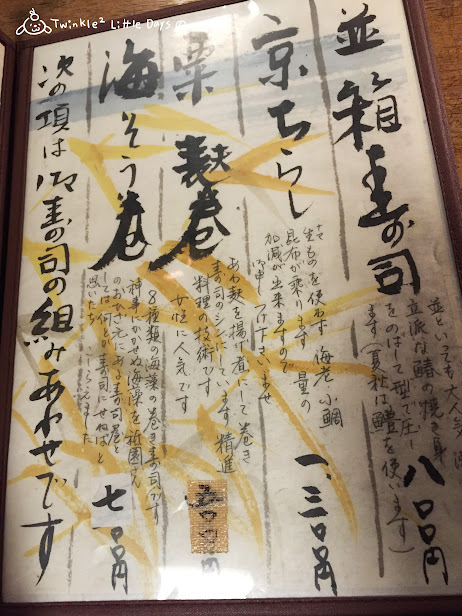 Twinkle² Little Days の
並 箱寿司
並といっても大人気
立派な鱧の焼き身
をのばして型で圧し
ます(夏秋は鱧を使います)
八〇〇円
京ちらし
生ものを使わず 海老 小鯛
昆布が乗ります 量の
加減が出来ますので
お申しつけ下さいませ
一、三〇〇円
粟麩巻
あわ麩を揚げ煮にして巻き
寿司のシンにしています 精進
料理の技術です
女性に人気です
海そう巻
8種類の海藻の巻き寿司です
神事にかかせぬ海藻を祇園さん
のおひざもとにある寿司巻と
しては何とか寿司にせねばと
思いたち こしらえました
七〇〇円
次の項は御寿司の組みあわせです